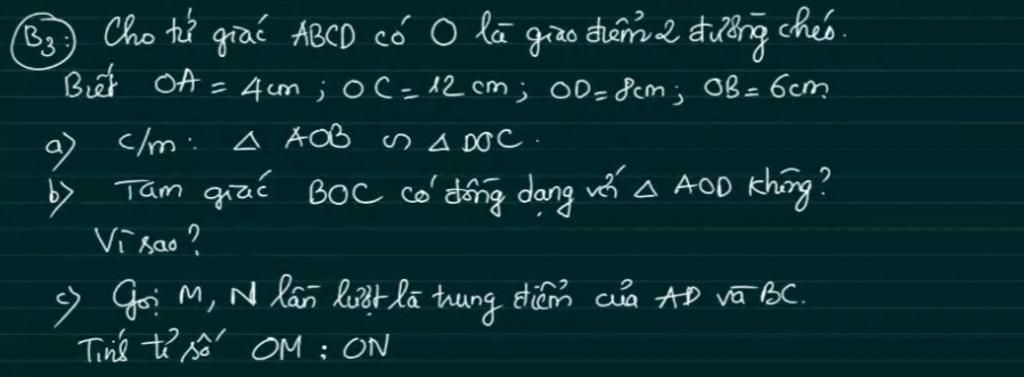 B3: Cho tứ giác ABCD có O là giao điểm 2 đường chéo.
Biết OA = 4cm ; OC = 12 cm ; OD = 8cm ; OB = 6cm
a) c/m : △ AOB ∽ △ DOC .
b) Tam giác BOC có đồng dạng với △ AOD không?
Vì sao?
c) Gọi M, N lần lượt là trung điểm của AD và BC.
Tính tỉ số OM : ON